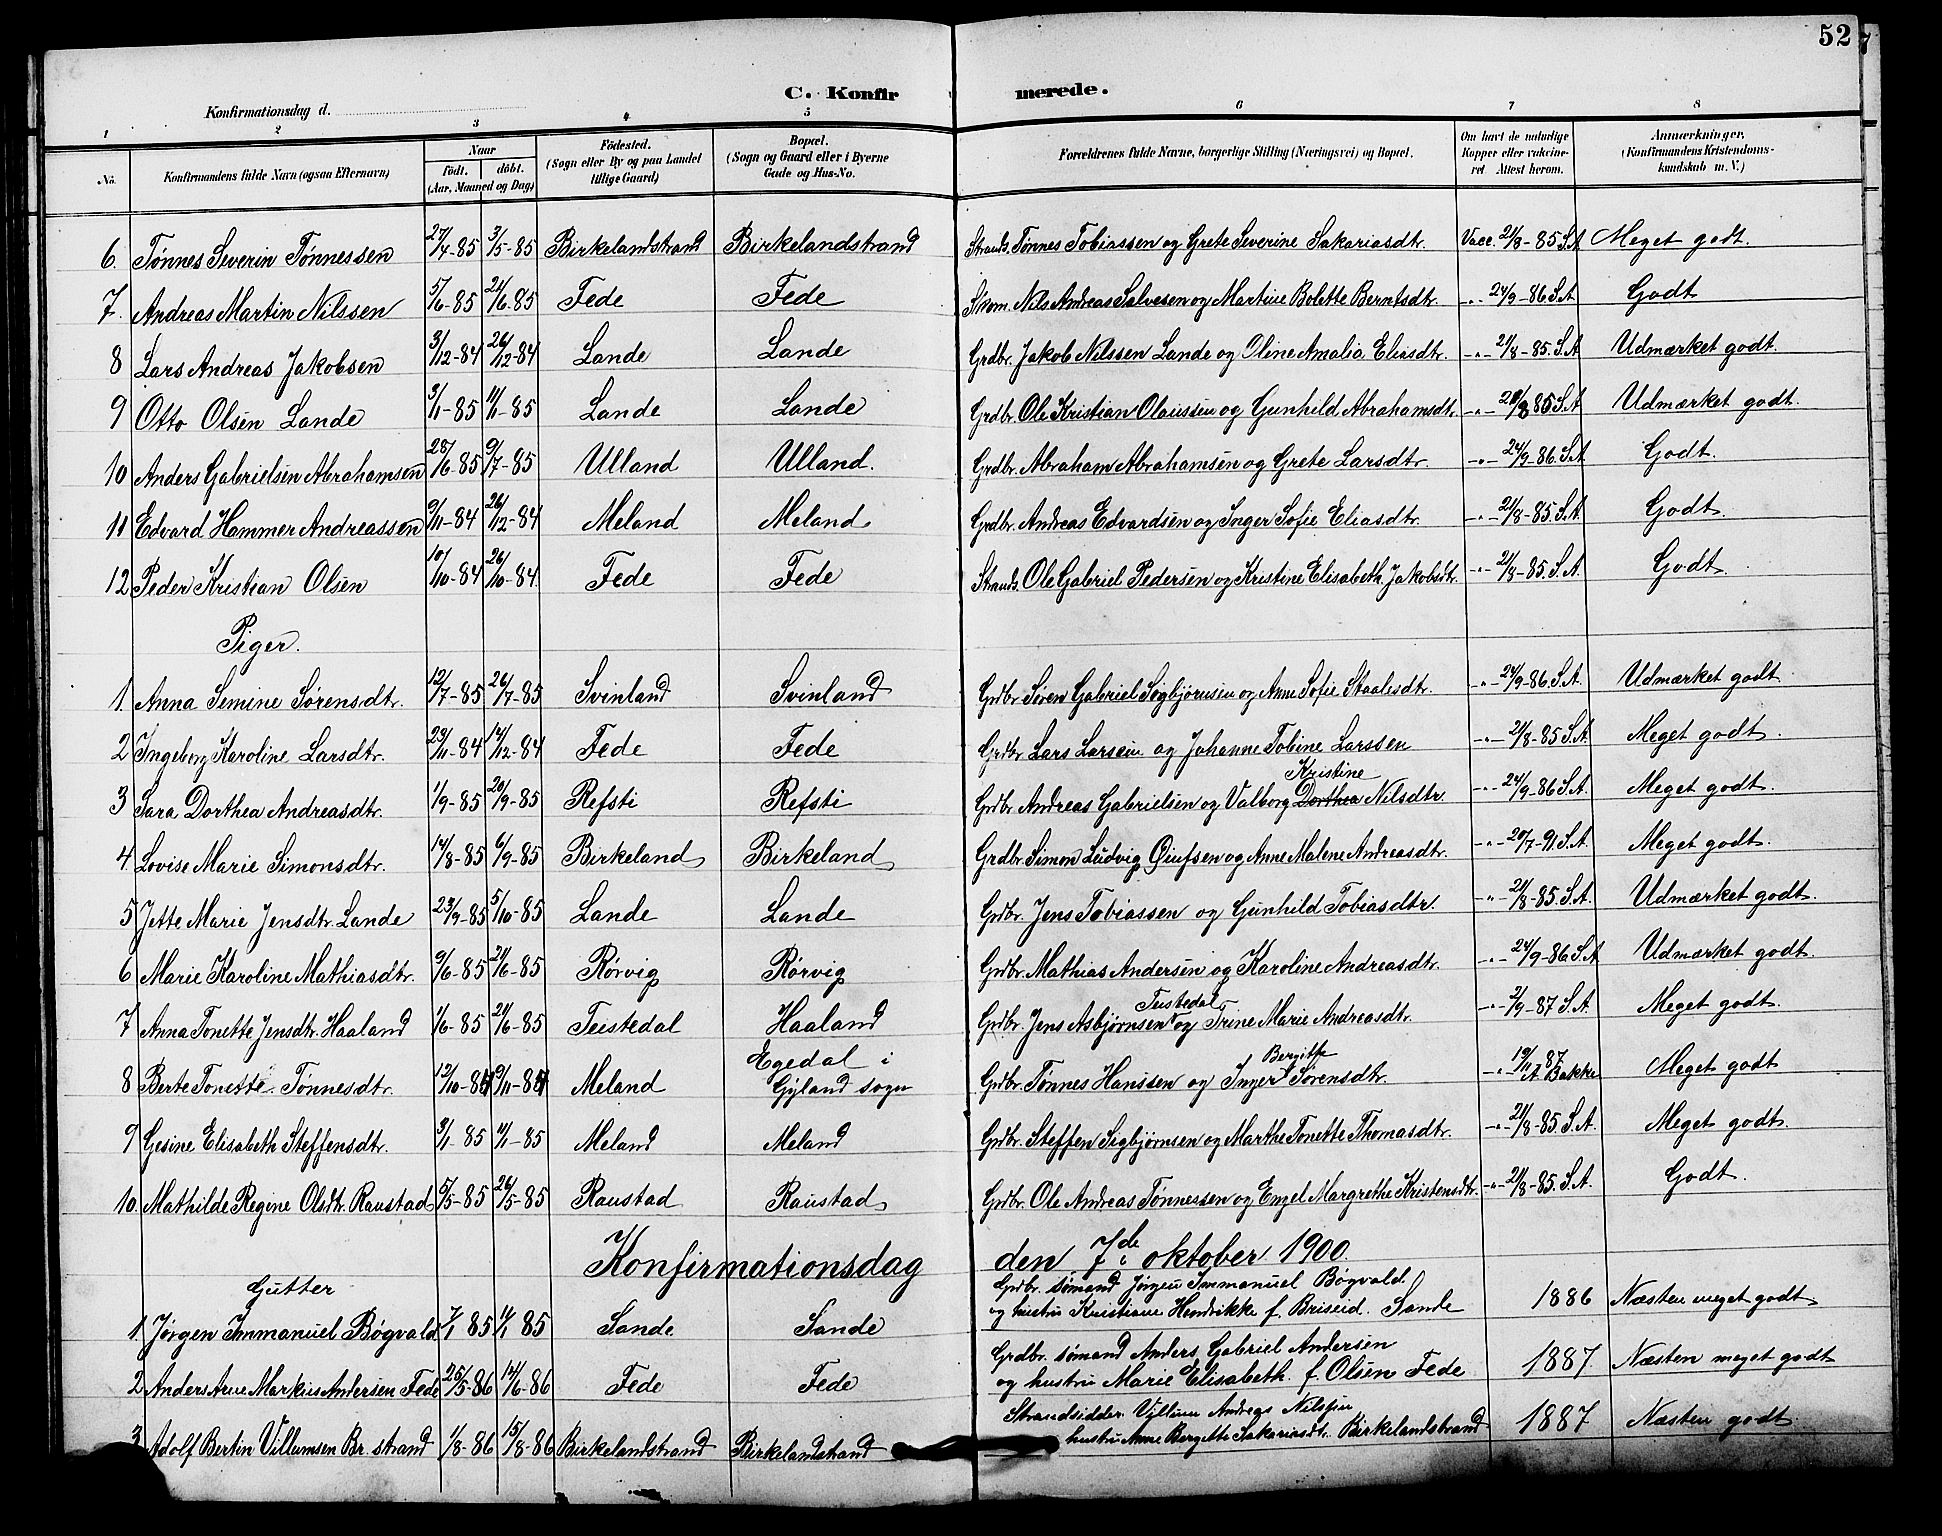 52
C. Konfirmerede.
Konfirmationsdag d.
1 2 3 4 5 6 7 8
No. Konfirmandens fulde Navn (ogsaa Efternavn) Naar Födt. döbt. (Aar, Maaned og Dag) Födested. (Sogn eller By og paa Landet tillige Gaard) Bopæl. (Sogn og Gaard eller i Byerne Gade og Hus-No. Forældrenes fulde Navne, borgerlige Stilling (Næringsvei) og Bopæl. Om havt de naturlige Kopper eller vakcineret Attest herom. Anmærkninger. (Konfirmandens Kristendomskundskab m. V.)
6. Tønnes Severin Tønnessen 27/4-85 3/5-85 Birkelandstrand Birkelandstrand Strands. Tønnes Tobiassen og Grete Severine Sakariasdtr. Vacc. 21/8-85 S.A Meget godt.
7. Andreas Martin Nilssen 5/6-85 21/6-85 Fede Fede Skom. Nils Andreas Salvesen og Martine Bolette Berntsdtr. -"- 24/9-86 S.A Godt
8 Lars Andreas Jakobsen 3/12-84 26/12-84 Lande Lande Grdbr. Jakob Nilssen Lande og Oline Amalia Eliasdtr. -"- 21/8-85. S.A Udmærket godt.
9 Otto Olsen Lande 3/1-85 11/1-85 Lande Lande Grdbr. Ole Kristian Olaussen og Gunhild Abrahamsdtr. -"- 21/8 85 S.A Udmærket godt.
10 Anders Gabrielsen Abrahamsen 28/6-85 9/7-85 Ulland Ulland. Grdbr. Abraham Abrahamsen og Grete Larsdtr. -"- 24/9-86. S.A Godt.
11 Edvard Hammer Andreassen 9/11-84 26/12-84 Meland Meland Grdbr. Andreas Edvardsen og Inger Sofie Eliasdtr. -"- 21/8-85. S.A. Godt.
12 Peder Kristian Olsen 10/10-84 26/10-84 Fede Fede Strands. Ole Gabriel Pedersen og Kristine Elisabeth Jakobsdtr. -"- 21/8-85. S.A. Godt.
Piger.
1. Anna Semine Sørensdtr. 12/7-85 26/7-85 Svinland Svinland Grdbr. Søren Gabriel Sigbjørnsen og Anne Sofie Staalesdtr. -"- 24/9-86. S.A. Udmærket godt
2 Ingeborg Karoline Larsdtr. 23/11-84 14/12-84 Fede Fede Grdbr. Lars Larsen og Johanne Tobine Larssen -"- 21/8-85 S.A. Meget godt.
Kristine
3 Sara Dorthea Andreasdtr. 1/9-85 20/9-85 Refsti Refsti Grdbr. Andreas Gabrielsen og Valborg Dorthea Nilsdtr. -"- 24/9-86 S.A. Meget godt.
4. Lovise Marie Simonsdtr. 14/8-85 6/9-85 Birkeland Birkeland Grdbr. Simon Ludvig Øiufsen og Anne Malene Andreasdtr. -"- 20/7-91. S.A. Meget godt.
5 Jette Marie Jensdtr. Lande 23/9-85 5/10-85 Lande Lande Grdbr. Jens Tobiassen og Gunhild Tobiasdtr. -"- 21/8-85. S.A. Udmærket godt.
6 Marie Karoline Mathiasdtr. 9/6-85 21/6-85 Rørvig Rørvig Grdbr. Mathias Andersen og Karoline Andreasdtr. -"- 24/9-86 S.A Udmærket godt.
Teistedal
7 Anna Tonette Jensdtr. Haaland 1/6-85 21/6-85 Teistedal Haaland Grdbr. Jens Asbjørnsen og Trine Marie Andreasdtr. -"- 2/9-87 S.A. Meget godt.
Bergitte
8 Berte Tonette Tønnesdtr. 12/10-84 9/11-84 Meland Egedal i Gyland sogn Grdbr. Tønnes Hanssen og Inger Sørensdtr. -"- 19/11 87 A Bakke Meget godt
9 Gesine Elisabeth Steffensdtr. 3/1-85 11/1-85 Meland Meland Grdbr. Steffen Sigbjørnsen og Marthe Tonette Thomasdtr. -"- 21/8-85. S.A. Meget godt.
10. Mathilde Regine Olsdtr. Raustad 5/5-85 26/5-85 Raustad Raustad Grdbr. Ole Andreas Tønnessen og Engel Margrethe Kristensdtr. -"- 21/8-85. S.A. Godt.
Konfirmationsdag den 7de oktober 1900.
Gutter
Grdbr. sømand Jørgen Immanuel Bøgvald
1. Jørgen Immanuel Bøgvald 7/1 85 11/1 85 Sande Sande og hustru Kristiane Hendrikke f. Briseid. Sande 1886 Næsten meget godt
Grdbr. sømand Anders Gabriel Andersen
2 Anders Arne Markus Andersen Fede 25/5-86 14/6-86 Fede Fede og hustru Marie Elisabeth f. Olsen Fede 1887 Næsten meget godt
Strandsidder Villum Andreas Nilssen
3 Adolf Bertin Villumsen Br. strand 1/8-86 15/8-86 Birkelandstrand Birkelandstrand hustru Anne Bergette Sakariasdtr. Birkelandstrand 1887 Næsten godt